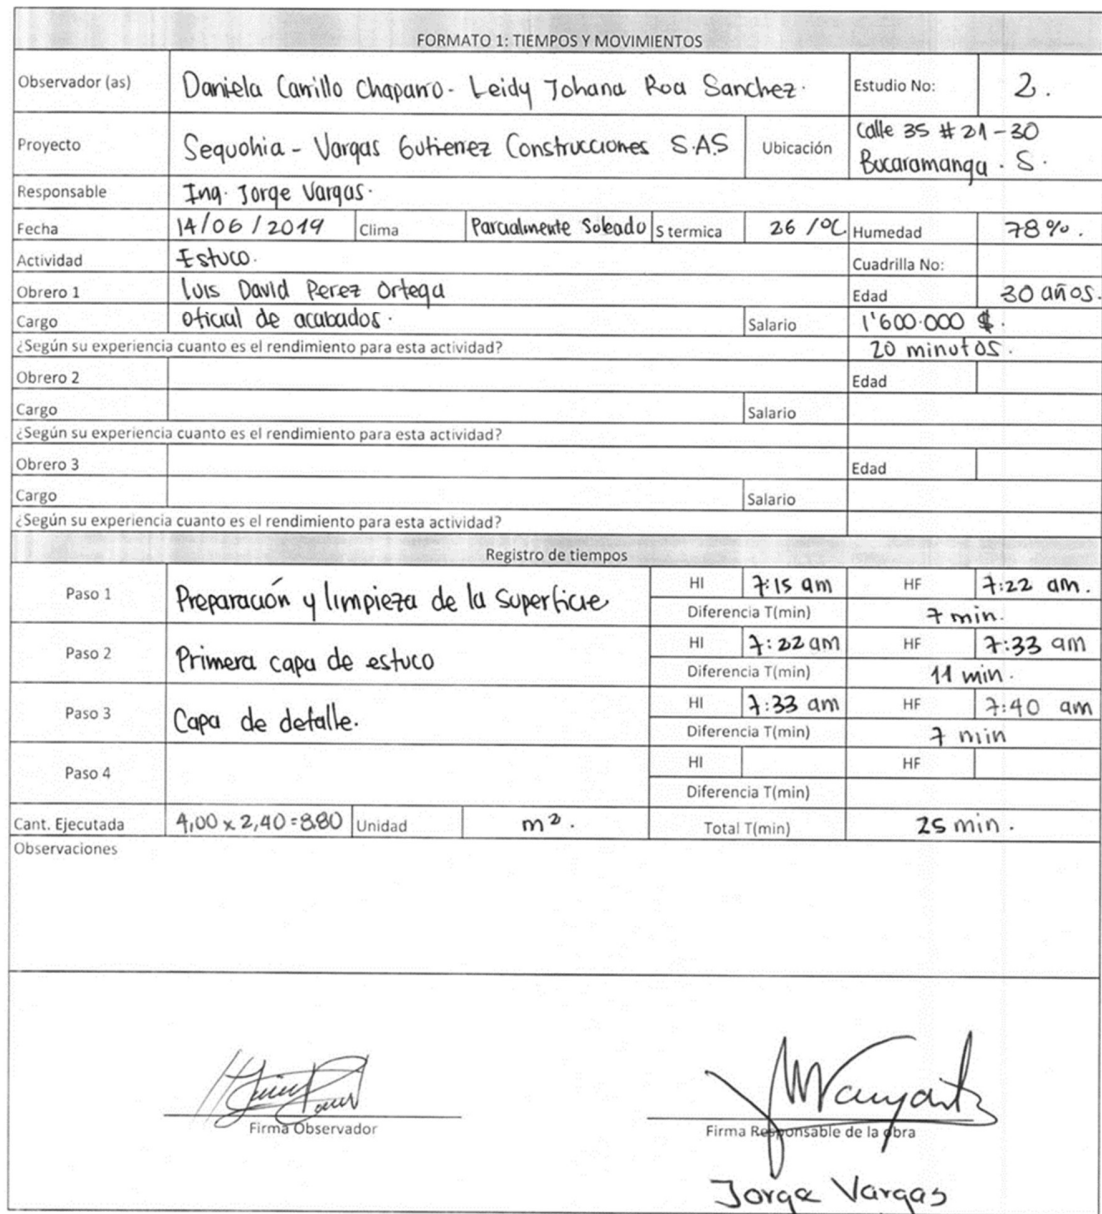 FORMATO 1: TIEMPOS Y MOVIMIENTOS
Observador (as) Daniela Carrillo Chaparro - Leidy Johana Roa Sanchez. Estudio No: 2.
Proyecto Sequohia - Vargas Gutierrez Construcciones S.A.S Ubicación Calle 35 # 21-30
Bucaramanga. S.
Responsable Ing. Jorge Vargas.
Fecha 14/06/2019 Clima Parcialmente Soleado S termica 26 /°C Humedad 78%.
Actividad Estuco. Cuadrilla No:
Obrero 1 Luis David Perez Ortega Edad 30 años.
Cargo oficial de acabados. Salario 1'600.000 $.
¿Según su experiencia cuanto es el rendimiento para esta actividad? 20 minutos.
Obrero 2 Edad
Cargo Salario
¿Según su experiencia cuanto es el rendimiento para esta actividad?
Obrero 3 Edad
Cargo Salario
¿Según su experiencia cuanto es el rendimiento para esta actividad?
Registro de tiempos
Paso 1 Preparación y limpieza de la superficie HI 7:15 am HF 7:22 am.
Diferencia T(min) 7 min.
Paso 2 Primera capa de estuco HI 7:22 am HF 7:33 am
Diferencia T(min) 11 min.
Paso 3 Capa de detalle. HI 7:33 am HF 7:40 am
Diferencia T(min) 7 min
Paso 4 HI HF
Diferencia T(min)
Cant. Ejecutada 4,00 x 2,40 = 8.80 Unidad m². Total T(min) 25 min.
Observaciones
Firma Observador
Firma Responsable de la obra
Jorge Vargas